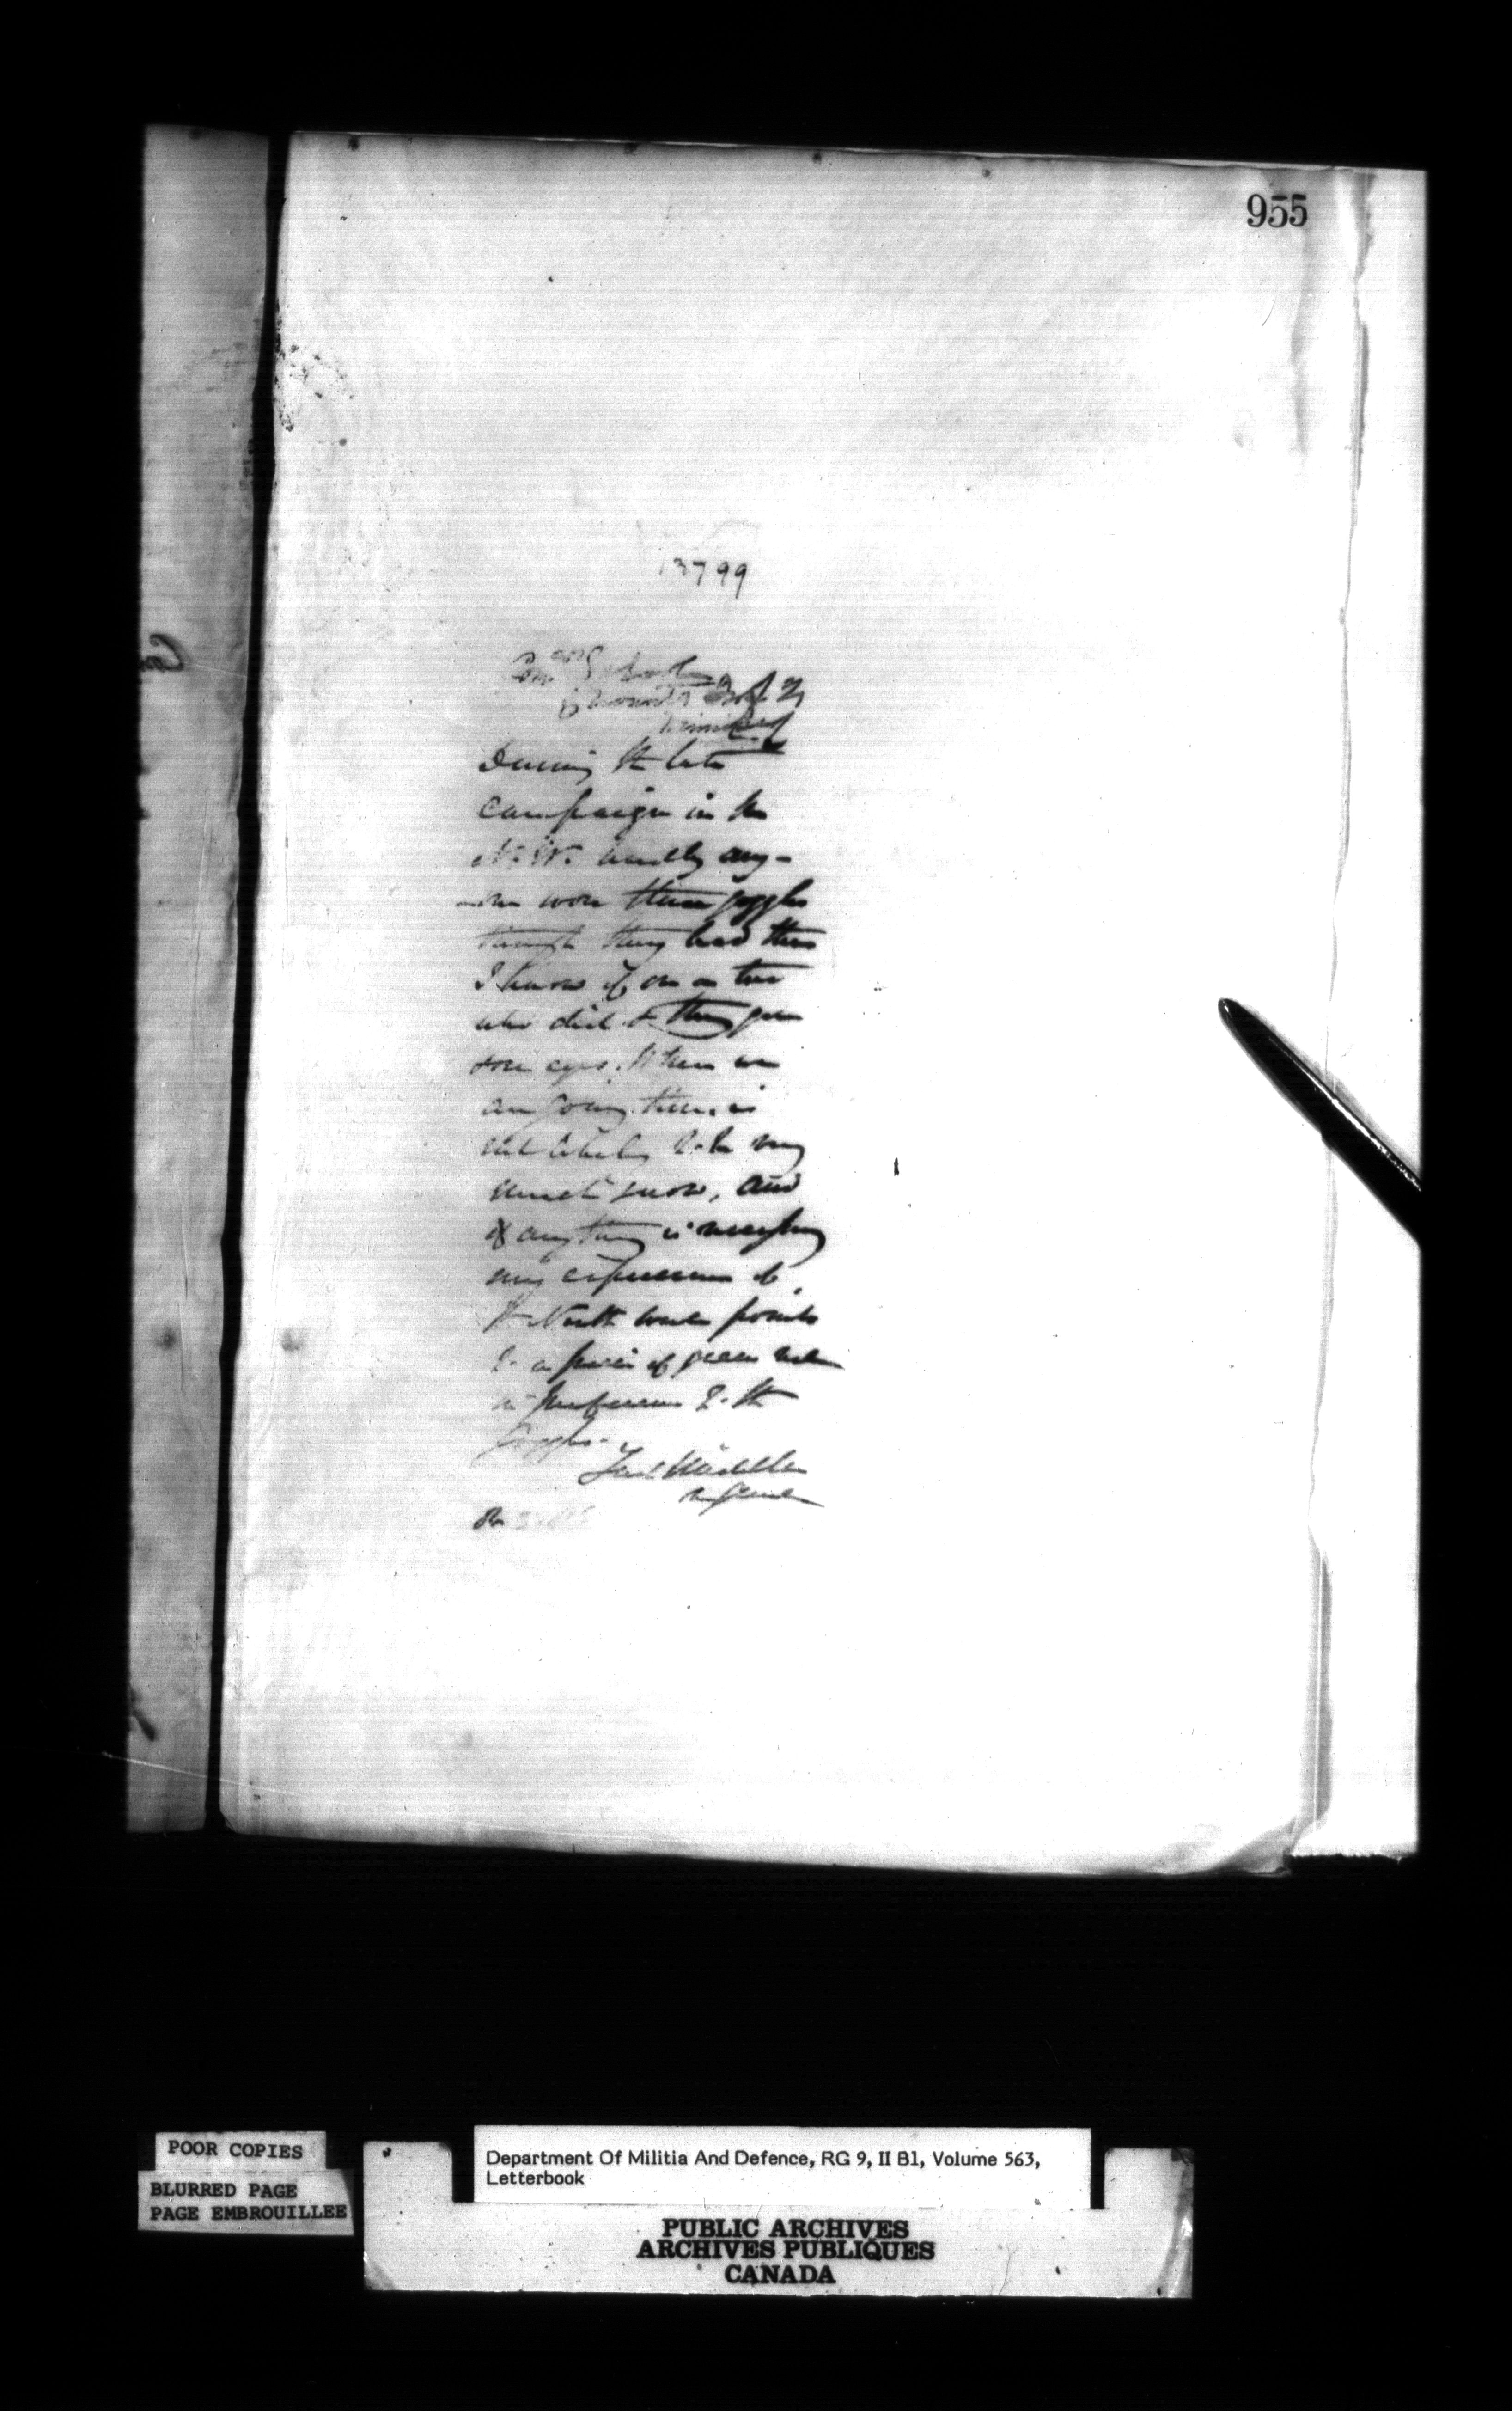 955
13799
During the late
campaign in the
N.W. hardly any-
one wore these goggles
though they had them
I know of one or two
who did & they got
sore eyes. When we
are going there is
not likely to be very
much snow, and
if anything is necessary
my experience of
the North West points
to a piece of green
in preference to the
goggles.
Fred Middleton
M General
POOR COPIES
BLURRED PAGE
PAGE EMBROUILLEE
Department Of Militia And Defence, RG 9, II B1, Volume 563,
Letterbook
PUBLIC ARCHIVES
ARCHIVES PUBLIQUES
CANADA